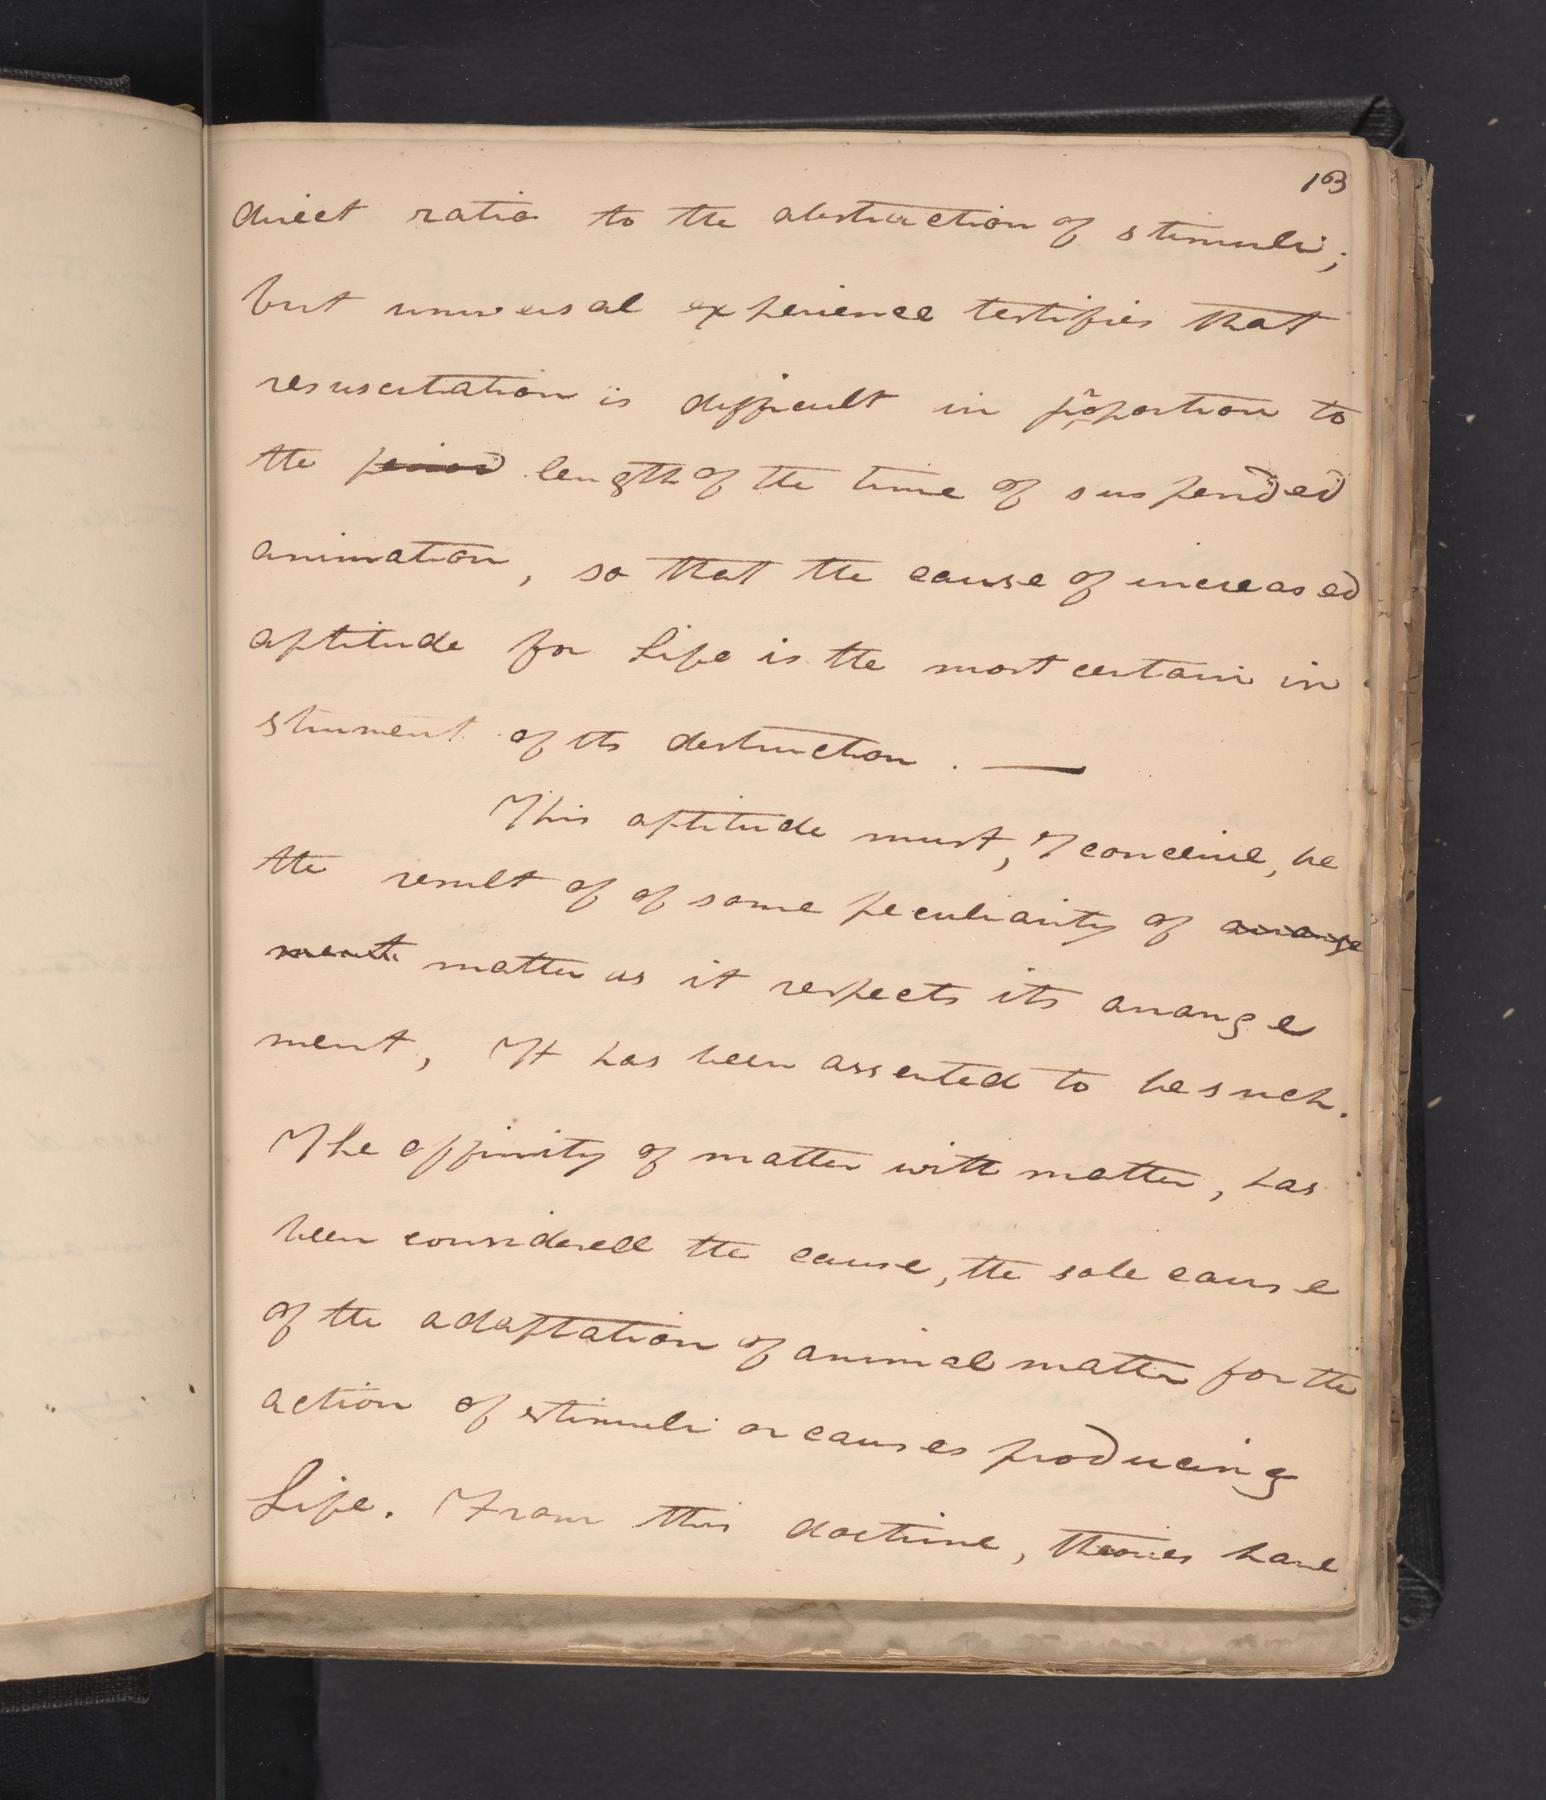 163
direct ratio to the abstraction of stimuli;
but universal experience testifies that
resuscitation is difficult in proportion to
the period length of the time of suspended
animation, so that the cause of increased
aptitude for Life is the most certain in
strument of its destruction. —
This aptitude must, I conceive, be
the result of of some peculiarity of arrange
ment matter as it respects its arrange
ment, It has been asserted to be such.
The affinity of matter with matter, has
been considered the cause, the sole cause
of the adaptation of animal matter for the
action of stimuli or causes producing
Life. From this doctrine, theories have